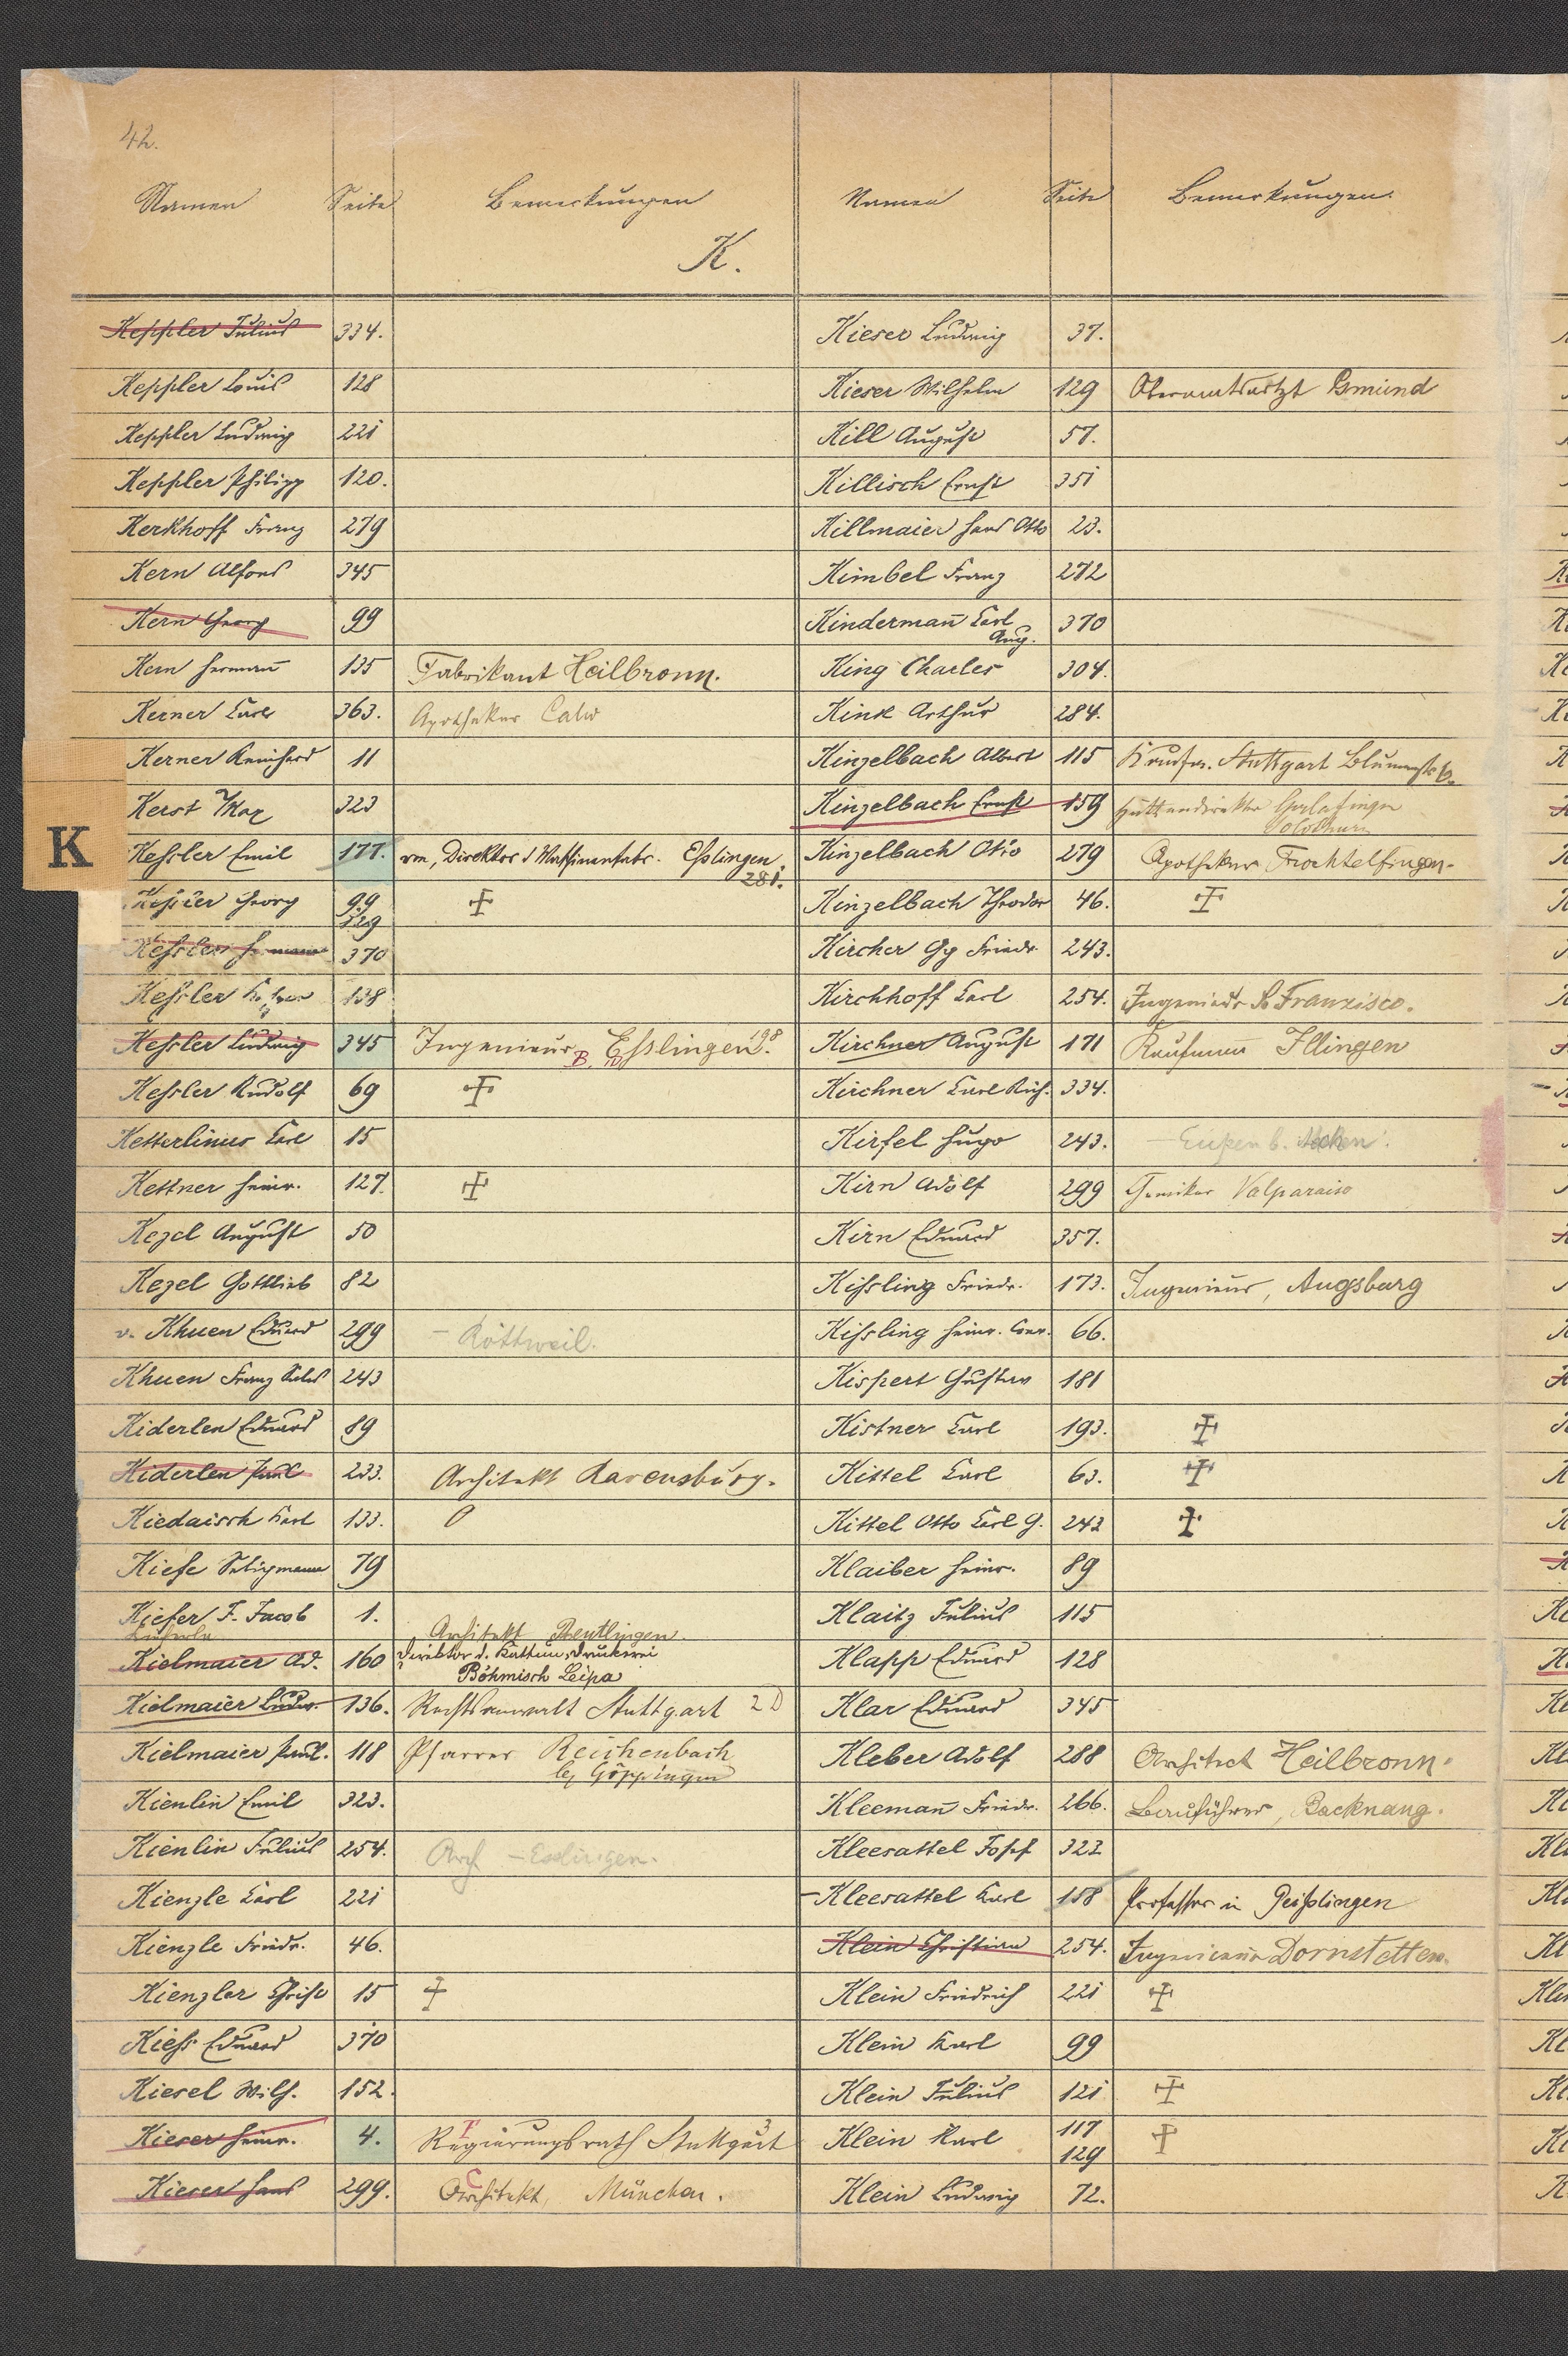 42.
Namen Seite Bemerkungen
K.
Keppler Julius 334.
Keppler Louis 128
Keppler Ludwig 221
Keppler Philipp 120.
Kerkhoff Franz 279
Kern Alfons 345
Kern Georg 99
Kern Hermañ 135 Fabrikant Heilbronn.
Kerner Carl 363. Apotheker Calw
Kerner Reinhard 11
Kerst Max 323
K
Kessler Emil 177. Direktor d Maschinenfabr. Esslingen.
281.
Kessler Georg 99
329
Kessler Hermann 370
Kessler 138
Kessler Ludwig 345 Ingenieur Esslingen 98.
B. IV
Kessler Rudolf 69
Ketterlinus Carl 15
Kettner Heinr. 127.
Kezel August 50
Kezel Gottlieb 82
v. Khuen Eduard 299 – Rottweil.
Khuen Franz 243
Kiderlen Eduard 89
Kiderlen Paul 233. Architekt Ravensburg.
Kiedaisch Karl 133.
Kiefe Seligmann 79
Kiefer F. Jacob 1.
Architekt Reutlingen.
Kielmaier Ad. 160 Direktor d. Kattun-druckerei
Böhmisch Leipa
Kielmaier Ludw. 136. Rechtsanwalt Stuttgart 2 D
Kielmaier Paul. 118 Pfarrer Reichenbach
bej Göppingen
Kienlin Emil 323.
Kienlin Julius 254. Arch – Esslingen.
Kienzle Carl 221
Kienzle Friedr. 46.
Kienzler Christ 15
Kiess Eduard 370
Kiesel Wilh. 152.
Kieser Heinr. 4. Regierungsrath Stuttgart 3
F
Kieser Hans 299. Architekt, München.
C
Namen Seite Bemerkungen.
Kieser Ludwig 37.
Kieser Wilhelm 129 Oberamtsartzt Gmünd
Kill August 57.
Killisch Ernst 351
Killmaier Hans Otto 23.
Kimbel Franz 272
Kindermañ Carl 370
Aug.
King Charles 304.
Kink Arthur 284.
Kinzelbach Albert 115 Stuttgart
Kinzelbach Ernst 159 Hüttendirektor Gerlafingen
Solothurn
Kinzelbach Otto 279 Apotheker Trochtelfingen-
Kinzelbach Theodor 46.
Kircher Gg Friedr. 243.
Kirchhoff Carl 254. Ingenieur St Franzisco.
Kirchner August 171 Kaufmann Illingen
Kirchner Carl Rich. 334.
Kirfel Hugo 243. – Eupen b. Aachen.
Kirn Adolf 299 Valparaiso
Kirn Eduard 357.
Kissling Friedr. 173. Ingenieur, Augsburg
Kissling Heinr. Conr. 66.
Kispert Gustav 181
Kistner Carl 193.
Kittel Carl 63.
Kittel Otto Carl G. 243
Klaiber Heinr. 89
Klaitz Julius 115
Klapp Eduard 128
Klar Eduard 345
Kleber Adolf 288 Architect Heilbronn.
Kleemañ Friedr. 266. Bauführer, Backnang.
Kleesattel Josef 323
– Kleesattel Karl 158 Professor in Geisslingen
Klein Christian 254. Ingenieur Dornstetten.
Klein Friedrich 221
Klein Karl 99
Klein Julius 121
Klein Karl 117
129
Klein Ludwig 72.